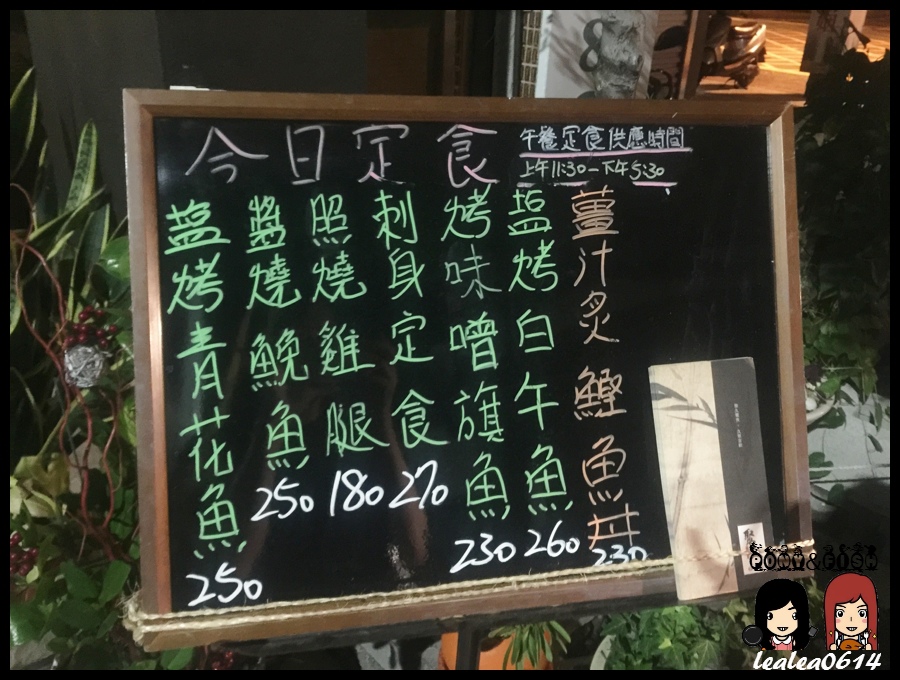 今日定食
午餐定食供應時間
上午11:30-下午5:30
薑汁炙鰹魚丼
230
塩烤白午魚
260
烤味噌旗魚
230
刺身定食
270
照燒雞腿
180
醬燒鮸魚
250
塩烤青花魚
250
lealea0614